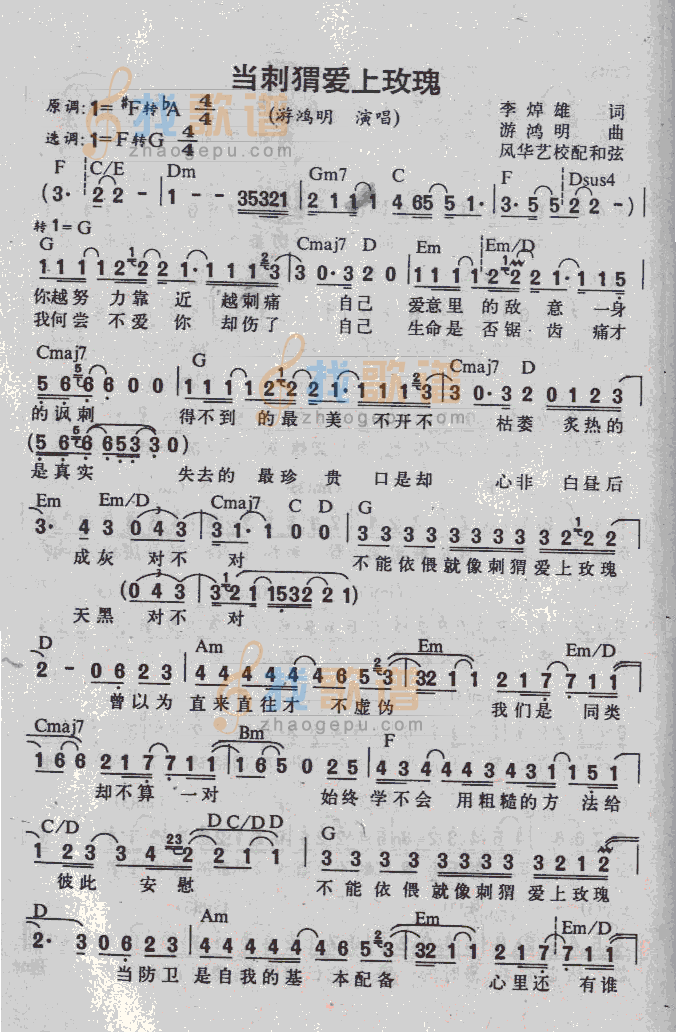 当刺猬爱上玫瑰
原调:1=♯F转♭A 4/4
(游鸿明 演唱)
李焯雄 词
选调:1=F转G 4/4
游鸿明 曲
风华艺校配和弦
找歌谱
zhaogepu.com
F C/E Dm Gm7 C F Dsus4
(3· 2 2 - 1 - - 35321 2 1 1 1 4 65 5 1· 3· 5 5 2 2 - )
转1=G
G Cmaj7 D Em Em/D
1 1 1 1 2 2 2 2 1· 1 1 1 3 3 0· 3 2 0 1 1 1 1 2 2 2 1· 1 1 5
你越努 力靠 近 越刺痛 自己 爱意里 的敌 意 一身
我何尝 不爱 你 却伤了 自己 生命是 否锯 齿 痛才
Cmaj7 G Cmaj7 D
5 6 6 6 0 0 1 1 1 1 2 2 2 2 1· 1 1 1 3 3 0· 3 2 0 1 2 3
的讽刺 得不到 的最 美 不开不 枯萎 炙热的
(5 6 6 6 6 5 3 3 0)
是真实 失去的 最珍 贵 口是却 心非 白昼后
Em Em/D Cmaj7 C D G
3· 4 3 0 4 3 3 1· 1 0 0 3 3 3 3 3 3 3 3 3 2 2 2
成灰 对不 对 不能依偎就像刺猬爱上玫瑰
(0 4 3 3 2 1 1532 2 1)
天黑 对不 对
D Am Em Em/D
2 - 0 6 2 3 4 4 4 4 4 4 6 5 3 32 1 1 2 1 7 7 1 1
曾以为 直来直往才 不虚伪 我们是 同类
Cmaj7 Bm F
1 6 6 2 1 7 7 1 1 1 6 5 0 2 5 4 3 4 4 4 3 4 3 1 1 5 1
却不算 一对 始终 学不会 用粗糙的方 法给
C/D D C/D D G
1 2 3 3 4 2 2 1 1 3 3 3 3 3 3 3 3 3 2 1 2
彼此 安慰 不能依偎就像刺猬 爱上玫瑰
D Am Em Em/D
2· 3 0 6 2 3 4 4 4 4 4 4 6 5 3 32 1 1 2 1 7 7 1 1
当防卫 是自我的基 本配备 心里还 有谁